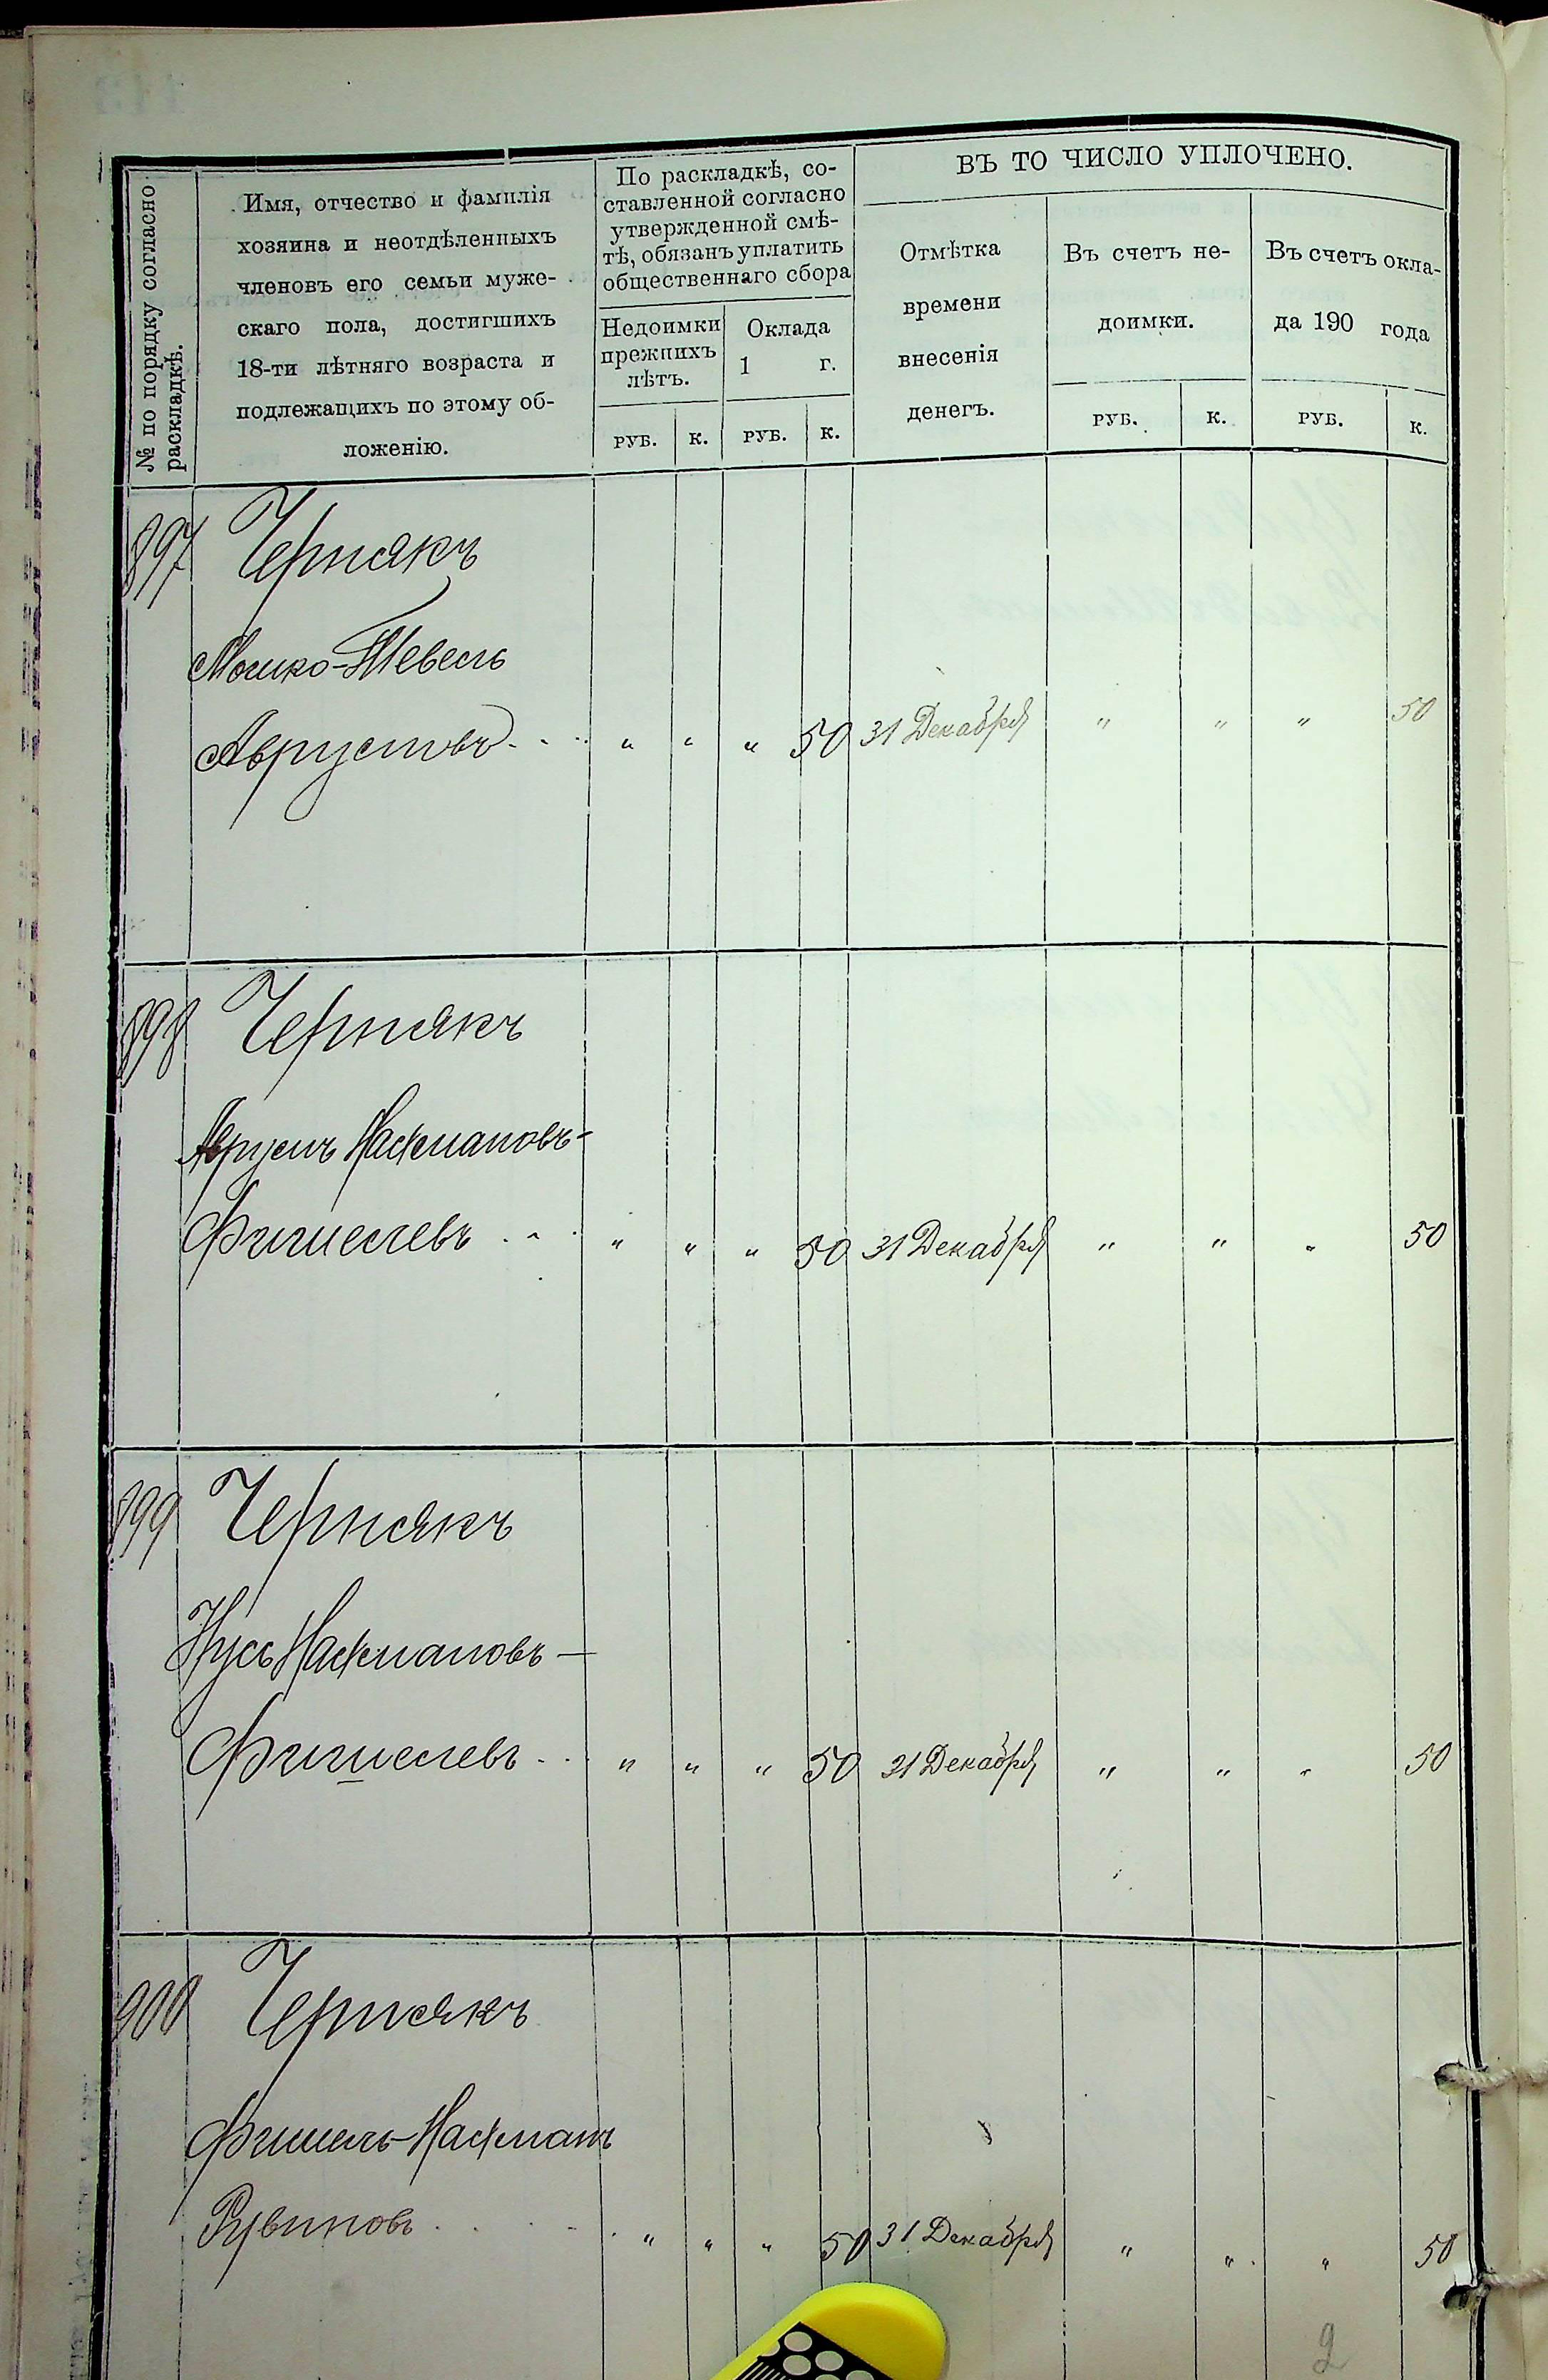 № по порядку согласно
раскладкѣ.
Имя, отчество и фамилія
хозяина и неотдѣленныхъ
членовъ его семьи муже-
скаго пола, достигшихъ
18-ти лѣтняго возраста и
подлежащихъ по этому об-
ложенію.
По раскладкѣ, со-
ставленной согласно
утвержденной смѣ-
тѣ, обязанъ уплатить
общественнаго сбора
Недоимки
прежнихъ
лѣтъ.
Оклада
1 г.
РУБ. К. РУБ. К.
ВЪ ТО ЧИСЛО УПЛОЧЕНО.
Отмѣтка
времени
внесенія
денегъ.
Въ счетъ не-
доимки.
Въ счетъ окла-
да 190 года
РУБ. К. РУБ. К.
897 Чернякъ
Мошко-Шевель
Аврумовъ " " " 50 31 Декабря " " " 50
898 Чернякъ
Аврумъ Нахмановъ-
Фишелевъ " " " 50 31 Декабря " " " 50
899 Чернякъ
Нусь Нахмановъ-
Фишелевъ " " " 50 31 Декабря " " " 50
900 Чернякъ
Фишель-Нахманъ
Рувиновъ " " " 50 31 Декабря " " " 50